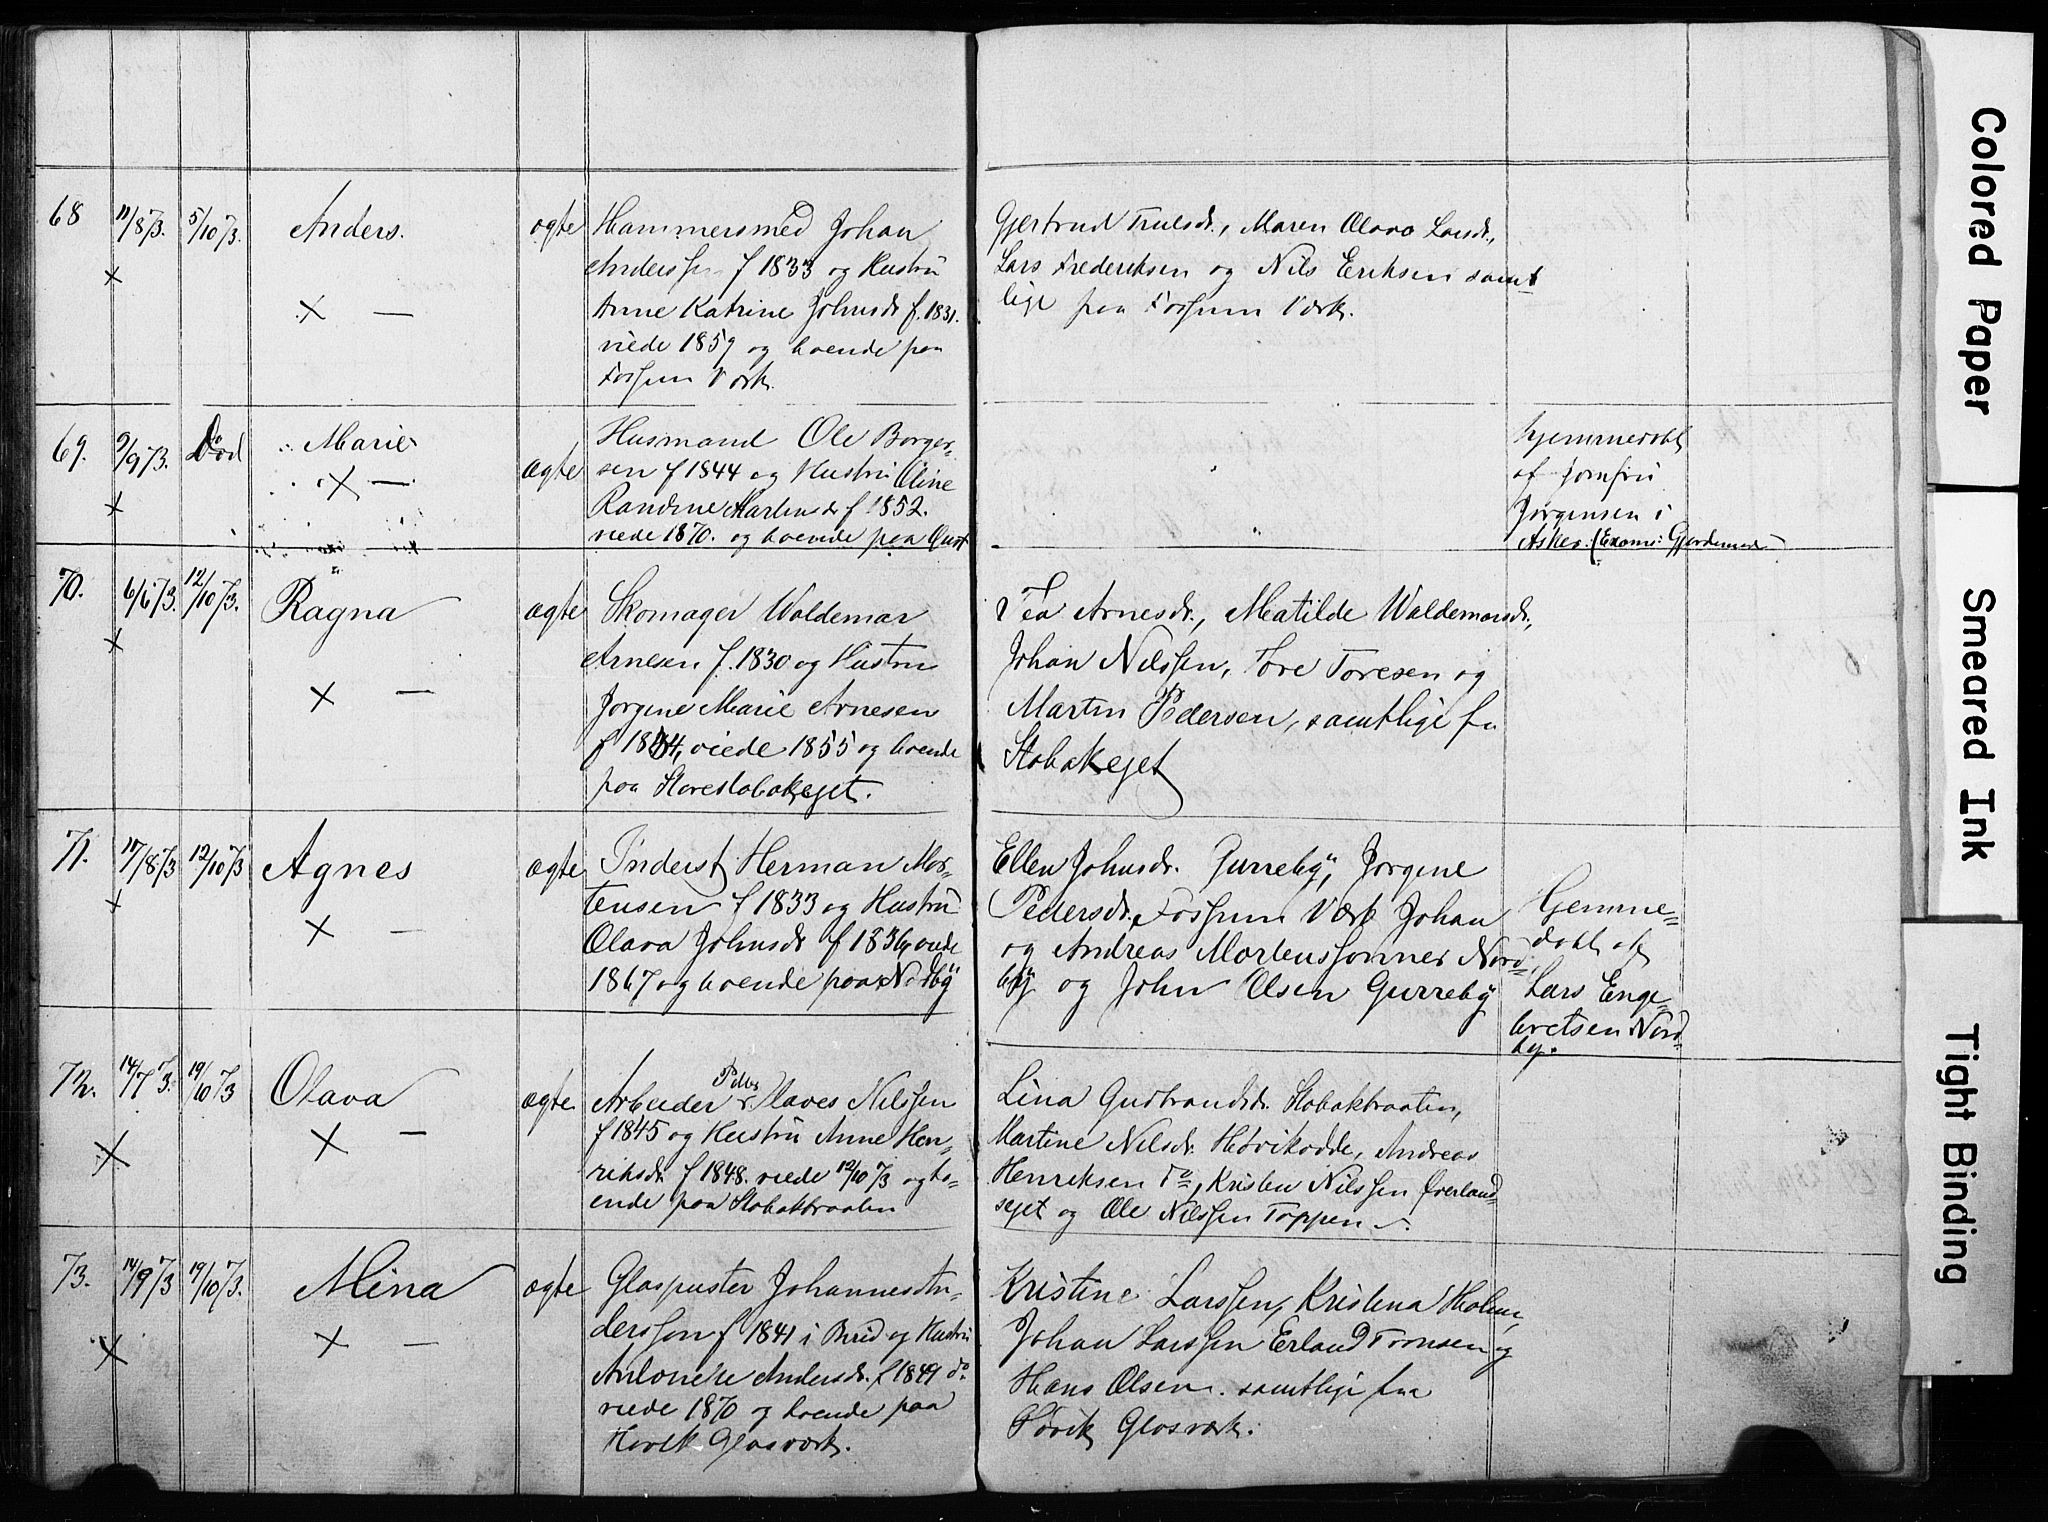 68
11/8 73.
5/10 73.
Anders.
ægte
Hammersmed Johan
Anderssen f 1833 og Hustru
Anne Katrine Johnsdr f. 1831.
viede 1859 og boende paa
Fossum Værk.
Gjertrud Trulsdr., Maren Olava Larsdr.,
Lars Frederiksen og Nils Eriksen samt
lige paa Fossum Værk.
× —
69.
9/9 73.
Død
Marie
× —
ægte
Husmand Ole Borger-
sen f 1844 og Hustru Oline
Randine Martinsdr f 1852.
viede 1870. og boende paa
hjemmedøbt
af Jomfru
Jørgensen i
Asker. (Exam: Gjordemod.
70.
6/6 73.
12/10 73.
Ragna
× —
ægte
Skomager Waldemar
Arnesen f. 1830 og Hustru
Jørgine Marie Arnesen
f 1834, viede 1855 og boende
paa Storestabakejet.
Tea Arnesdr., Matilde Waldemarsdr.,
Johan Nilssen, Tore Toresen og
Martin Pedersen, samtlige fra
Stabakejet
71.
17/8 73
12/10 73
Agnes
× —
ægte
Inderst Herman Mor-
tensen f 1833 og Hustru
Olava Johnsdr f 1836, viede
1867 og boende paa Nordby
Ellen Johnsdr. Gurreby, Jørgine
Pedersdr. Fossum Værk Johan
og Andreas Mortenssønner Nord-
by og John Olsen Gurreby
Hjemme-
døbt af
Lars Enge-
bretsen Nord-
by.
72.
14/7 73.
19/10 73
Olava
× —
ægte
Arbeider Peder Olaves Nilssen
f 1845 og Hustru Anne Hen-
riksdr f 1848. viede 12/10 73 og bo-
ende paa Stabakbraaten
Lina Gudbrandsdr. Stabakbraaten,
Martine Nilsdr. Høvikodde, Andreas
Henriksen Do, Kristen Nilssen Øverland
sejet og Ole Nilssen Toppen.
73.
14/9 73
19/10 73.
Mina
× —
ægte
Glaspuster Johannes An-
derssøn f 1841 i Brid og Hustru
Antonette Andersdr. f 1849 do
viede 1870 og boende paa
Høvik Glasværk.
Kristine Larssen, Kristina Holm,
Johan Larssen Erland Tronsen og
Hans Olsen. samtlige fra
Høvik Glasværk.
Colored Paper
Smeared Ink
Tight Binding